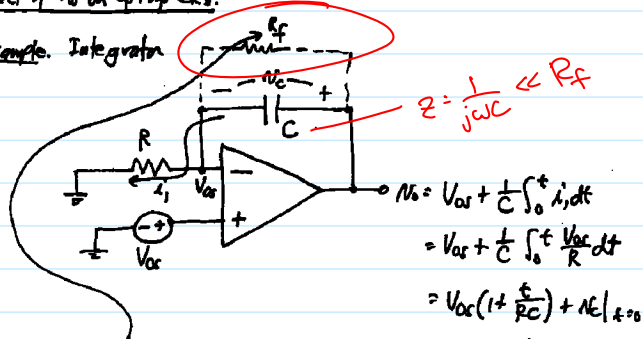 Example. Integrator
R_f
- v_c +
C
z = 1/jωC << R_f
R
i_1
V_os
-
+
- +
V_os
v_o = V_os + 1/C ∫_0^t i_1 dt
= V_os + 1/C ∫_0^t V_os/R dt
= V_os (1 + t/RC) + v_c|_t=0